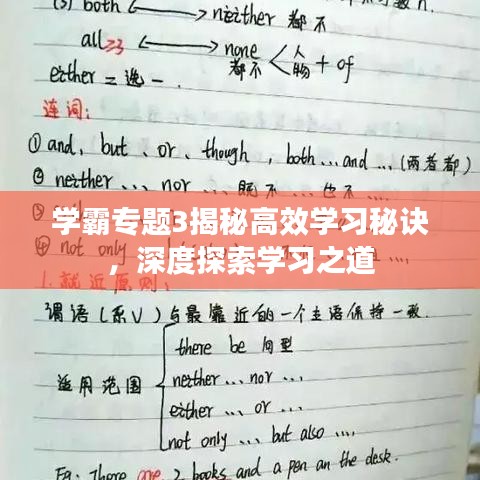 (3) both ⟷ neither 都不
all≥3 ⟷ none 都不 < 人 物 + of
either = 选一
连词:
① and, but、or、though, both...and...(两者都)
② neither... nor... 既不...也不...
学霸专题3揭秘高效学习秘诀
,深度探索学习之道
④ not only
1.就近原则:
谓语(系V)与最靠近的一个主语保持一致.
适用范围
there be 句型
neither... nor...
either... or...
not only... but also...
Eg: There are 2 books and a pen on the desk.